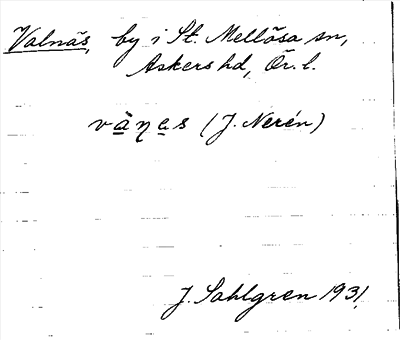 Valnäs, by i St. Mellösa sn,
Askers hd, Ör. l.
vàŋes (J. Nerén)
J. Sahlgren 1931.